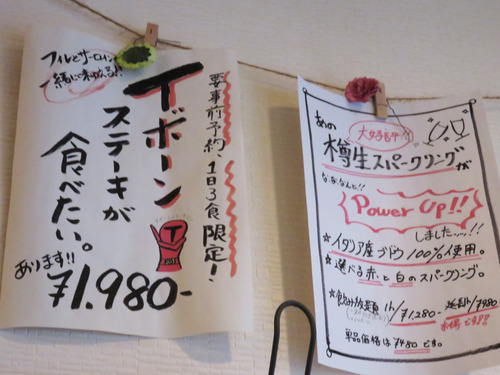 フィレとサーロイン
一緒に味わえる!!
要事前予約、1日3食限定!
Tボーン
ステーキが
食べたい。
あります!!
¥1,980-
あの
大好評
樽生スパークリングが
な、な、なんと!!
Power Up!!
しましたッッ!!
☆イタリア産ブドウ100%使用。
☆選べる赤と白のスパークリング。
☆飲み放題 1h/¥1,280- 延長1h/¥980
お得です!!
単品価格は¥480です。